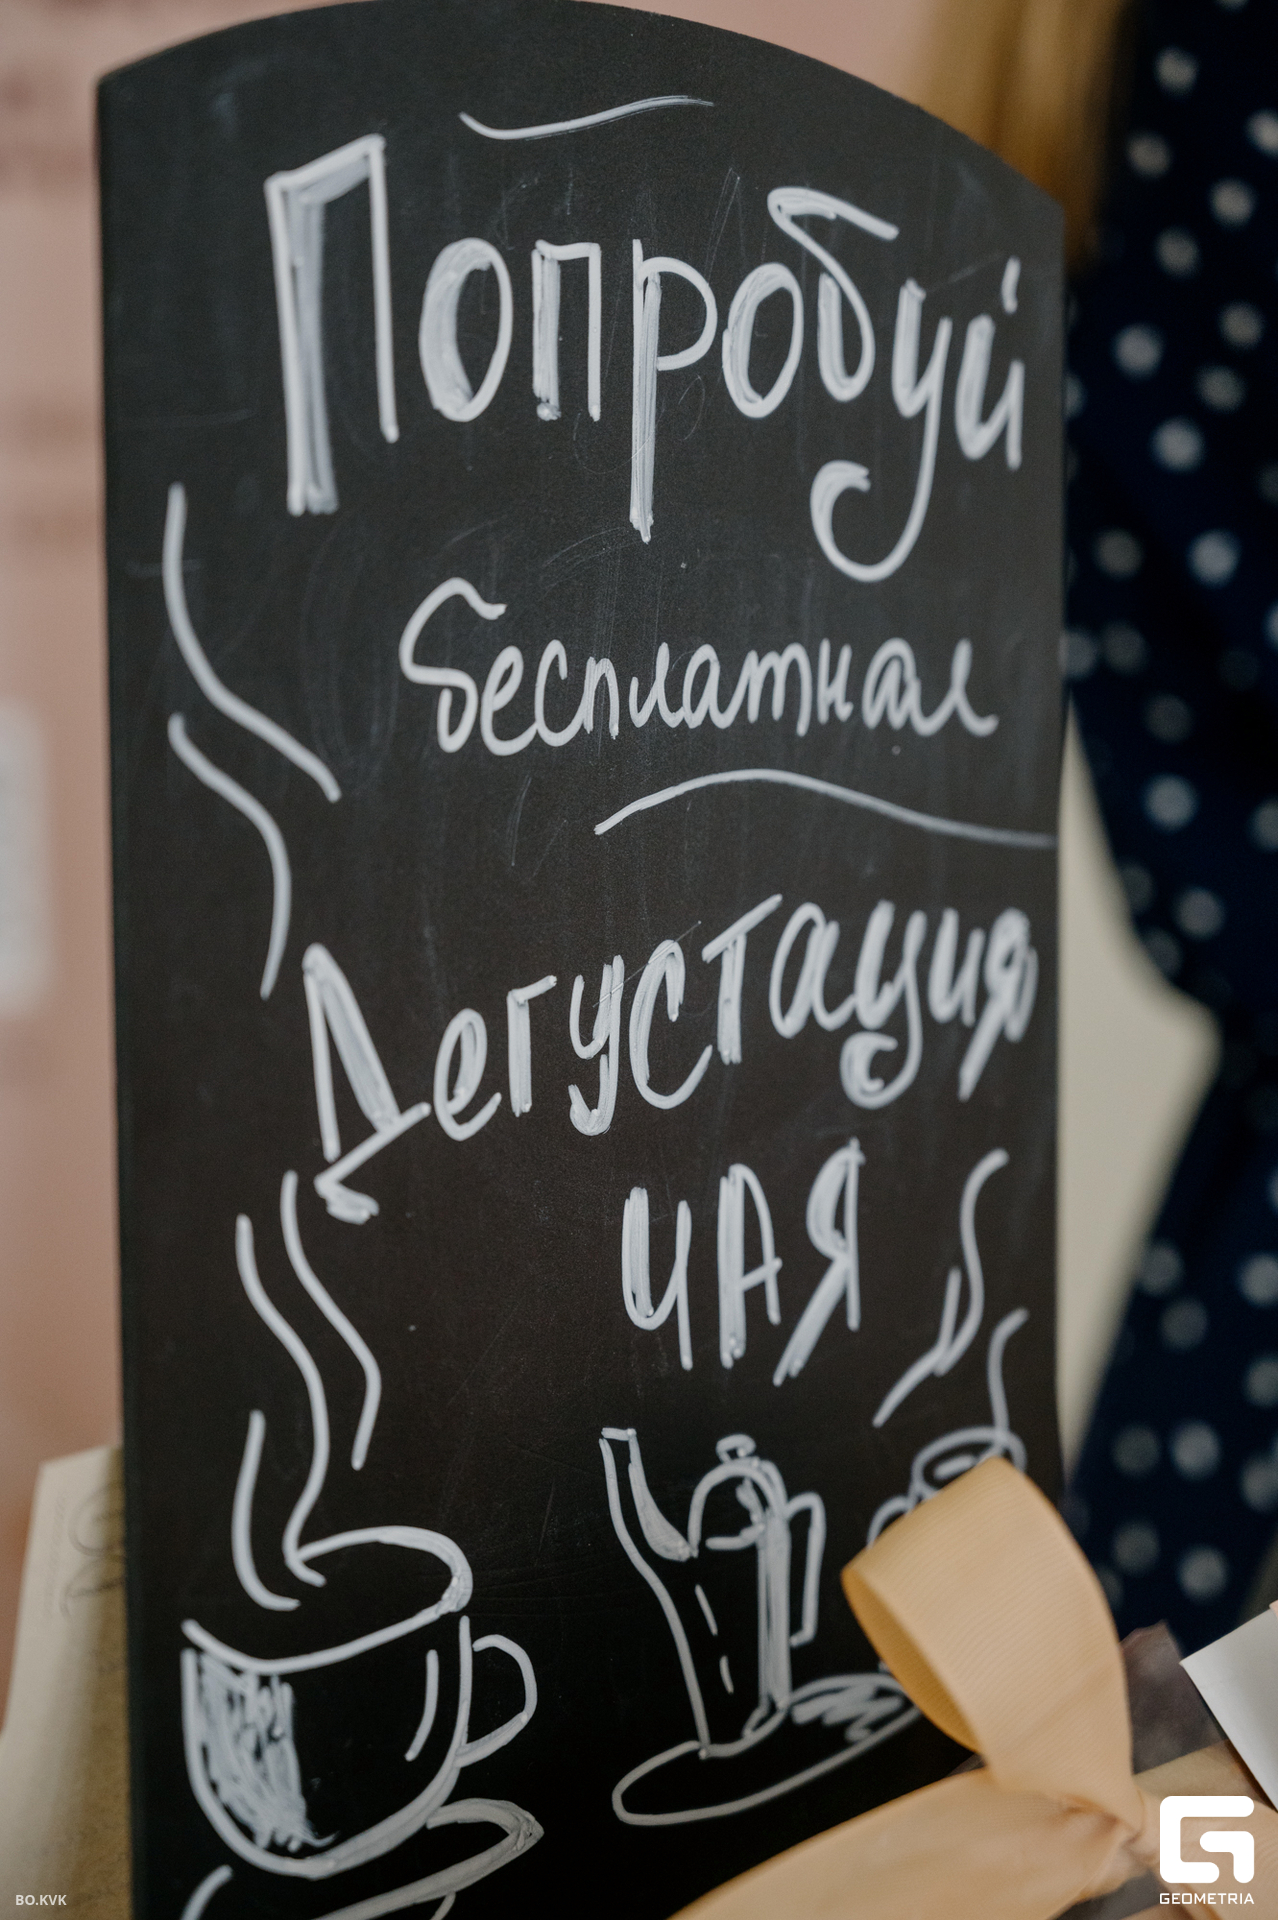 Попробуй
бесплатная
Дегустация
ЧАЯ
BO.KVK
GEOMETRIA